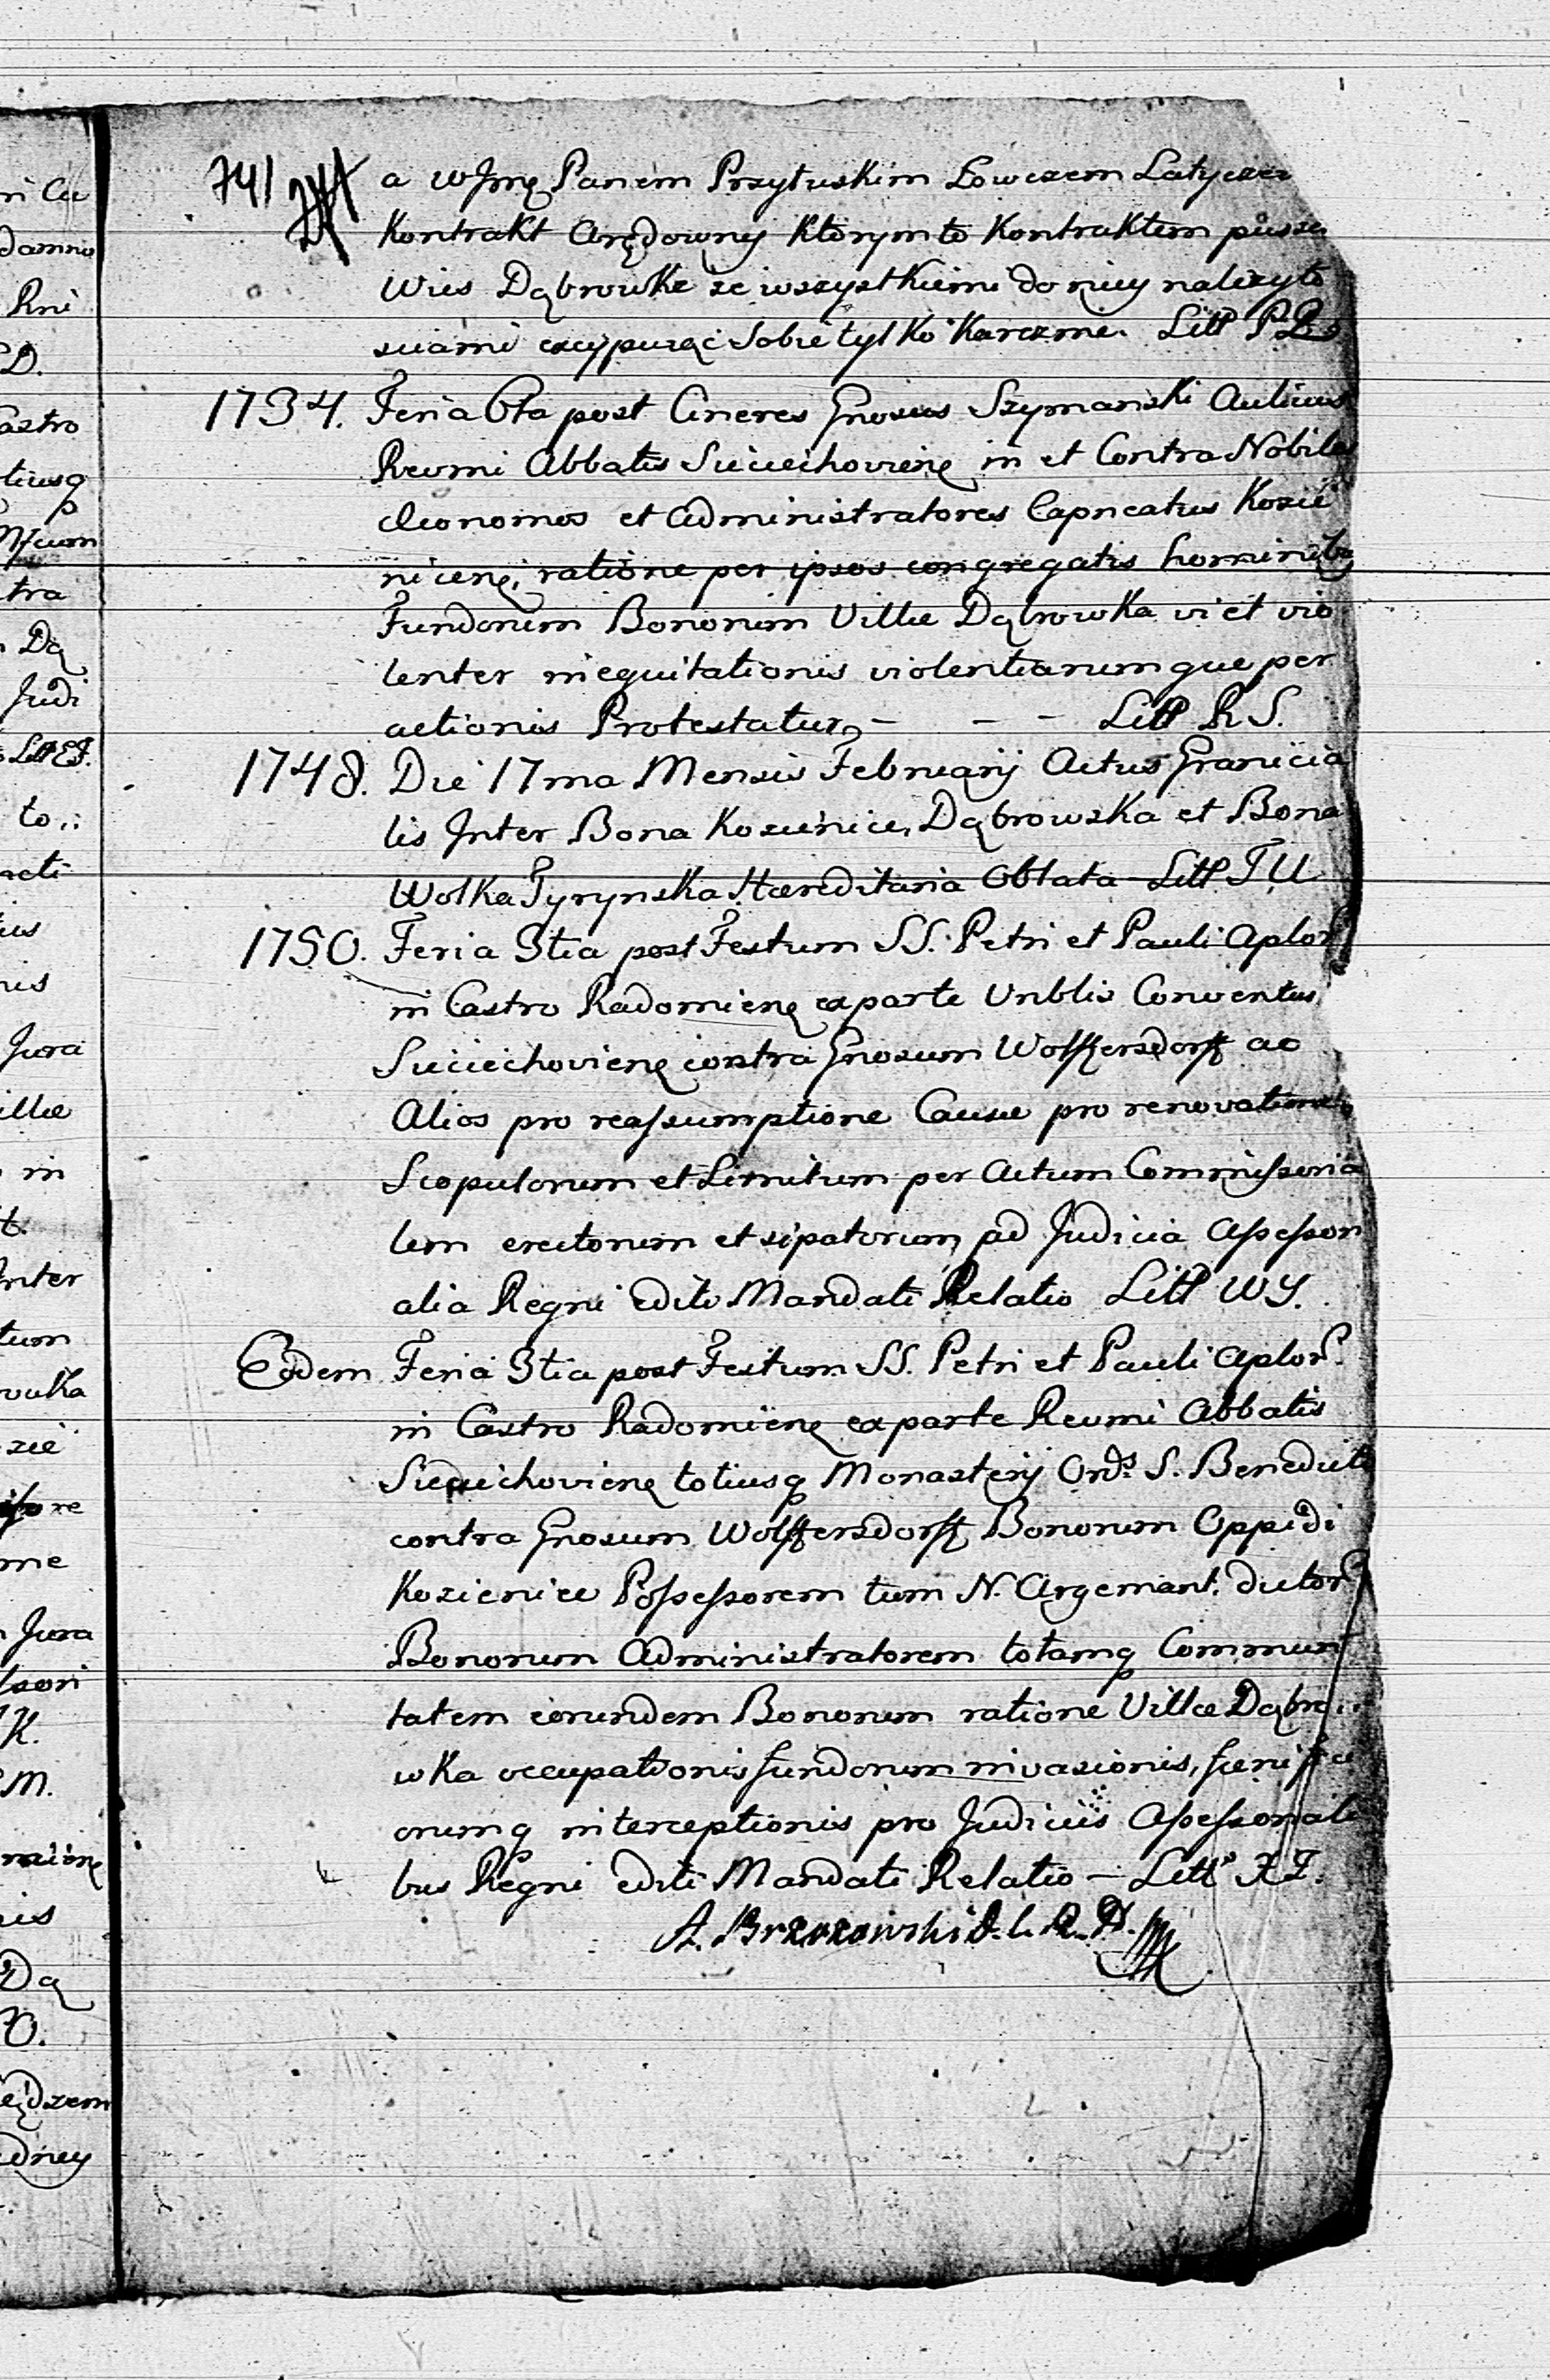 741
a WJmę Panem Przytuskim Łowczem Latycze
Kontrakt Arędowny Ktorym to Kontraktem puszcz
Wies Dąbrowke ze wszystkiemi do niey należyto
sciami excypuiąc sobie tylko Karczmie. Litt P
1734. Feria 6ta post Cineres Gnosus Szymanski Aulicus
Reumi Abbatis Sieciechoviens in et Contra Nobiles
Oeconomos et Administratores Capneatus Kozie
nicens, ratione per ipsos congregatis hominibq
Fundorum Bonorum Villæ Dąbrowka vi et vio
lenter inequitationis violentiarumque per
actionis Protestatur, - - - Litt R S.
1748. Die 17ma Mensis Februarij Actus Granicia
lis Inter Bona Kozienice, Dąbrowska et Bona
Wolka Tyrynska Hæreditaria Oblata - Litt. T U
1750. Feria 3tia post Festum SS. Petri et Pauli Aplor
in Castro Radomiens ex parte Vnblis Conventus
Sieciechoviens contra Gnosum Wolffersdorff ac
Alios pro reassumptione Causæ pro renovatione
Scopulorum et Limitum per Actum Commissoria
lem erectorum et sipatorum, ad Judicia Assessori
alia Regni editi Mandati Relatio Litt W Y.
Eodem Feria 3tia post Festum SS. Petri et Pauli Aplor.
in Castro Radomiens ex parte Reumi Abbatis
Sieciechoviens totiusq Monasterij Ords S. Benedicti
contra Gnosum Wolffersdorff Bonorum Oppidi
Kozienice Possessorem tum N. Argemant. dictor
Bonorum Administratorem totamq Communi
tatem eorundem Bonorum ratione Villæ Dąbro
wka occupationis fundorum invasionis, fæni
orumq interceptionis pro Judiciis Assessoriali
bus Regni editi Mandati Relatio - Litt X Z.
A. Brzozowski